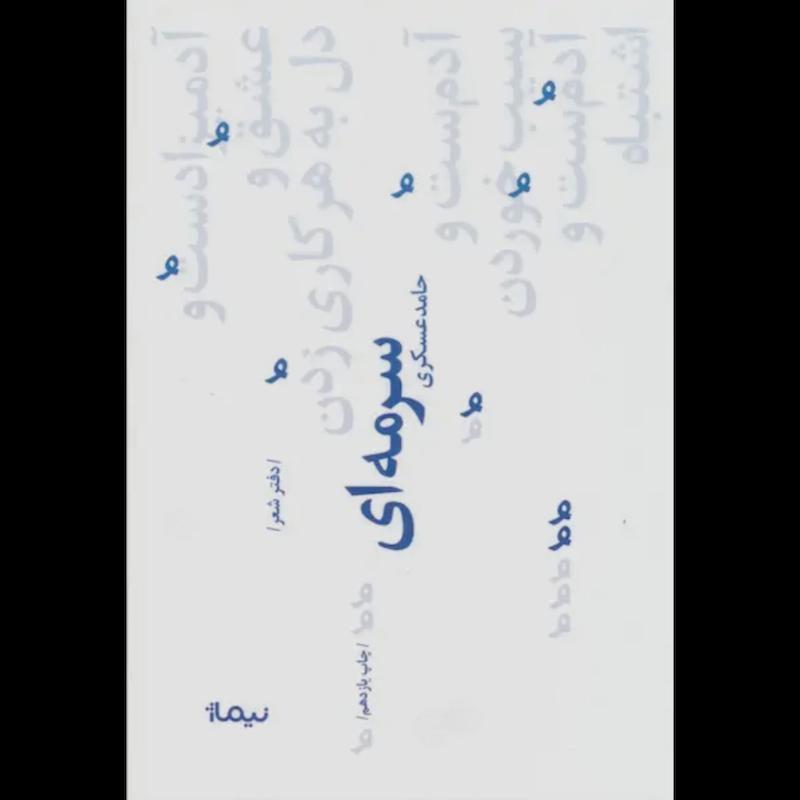 اشتباه
آدم‌ست و
سیب خوردن
آدم‌ست و
دل به هر کاری زدن
عشق و
آدمیزادست و
حامد عسکری
سرمه‌ای
/ دفتر شعر /
/ چاپ یازدهم /
نیماژ